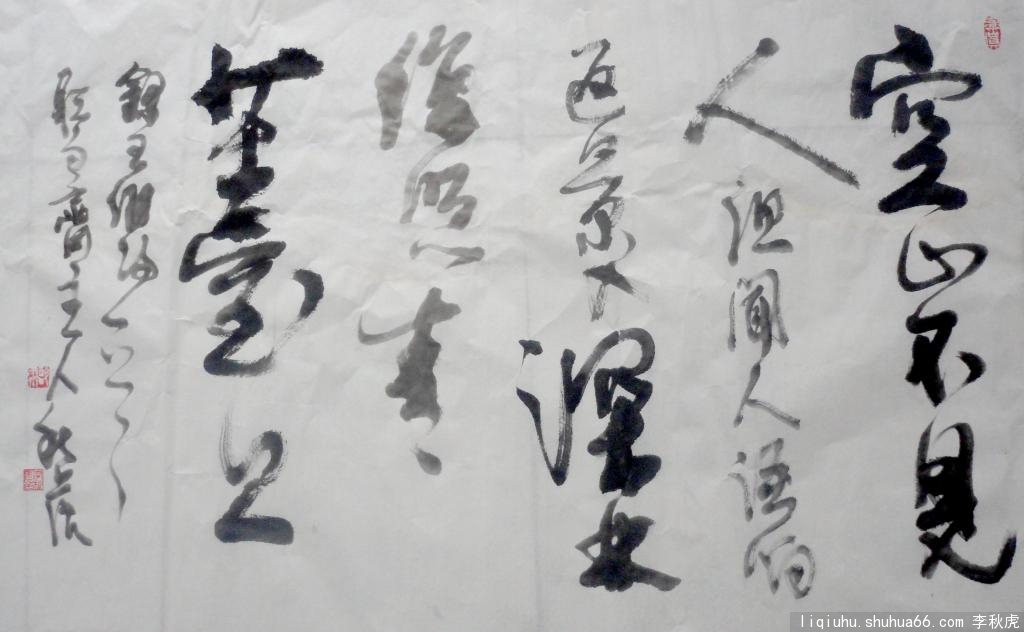 空山不見
人但聞人語响
返景入深林
復照青
薹上
錄王維詩一
齋主人秋虎
liqiuhu.shuhua66.com 李秋虎